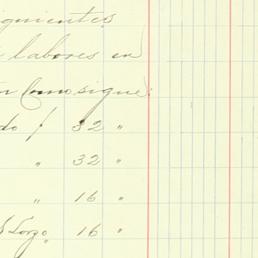 siguientes
labores en
como sigue:
do / 32 "
" 32 "
" 16 "
16 "